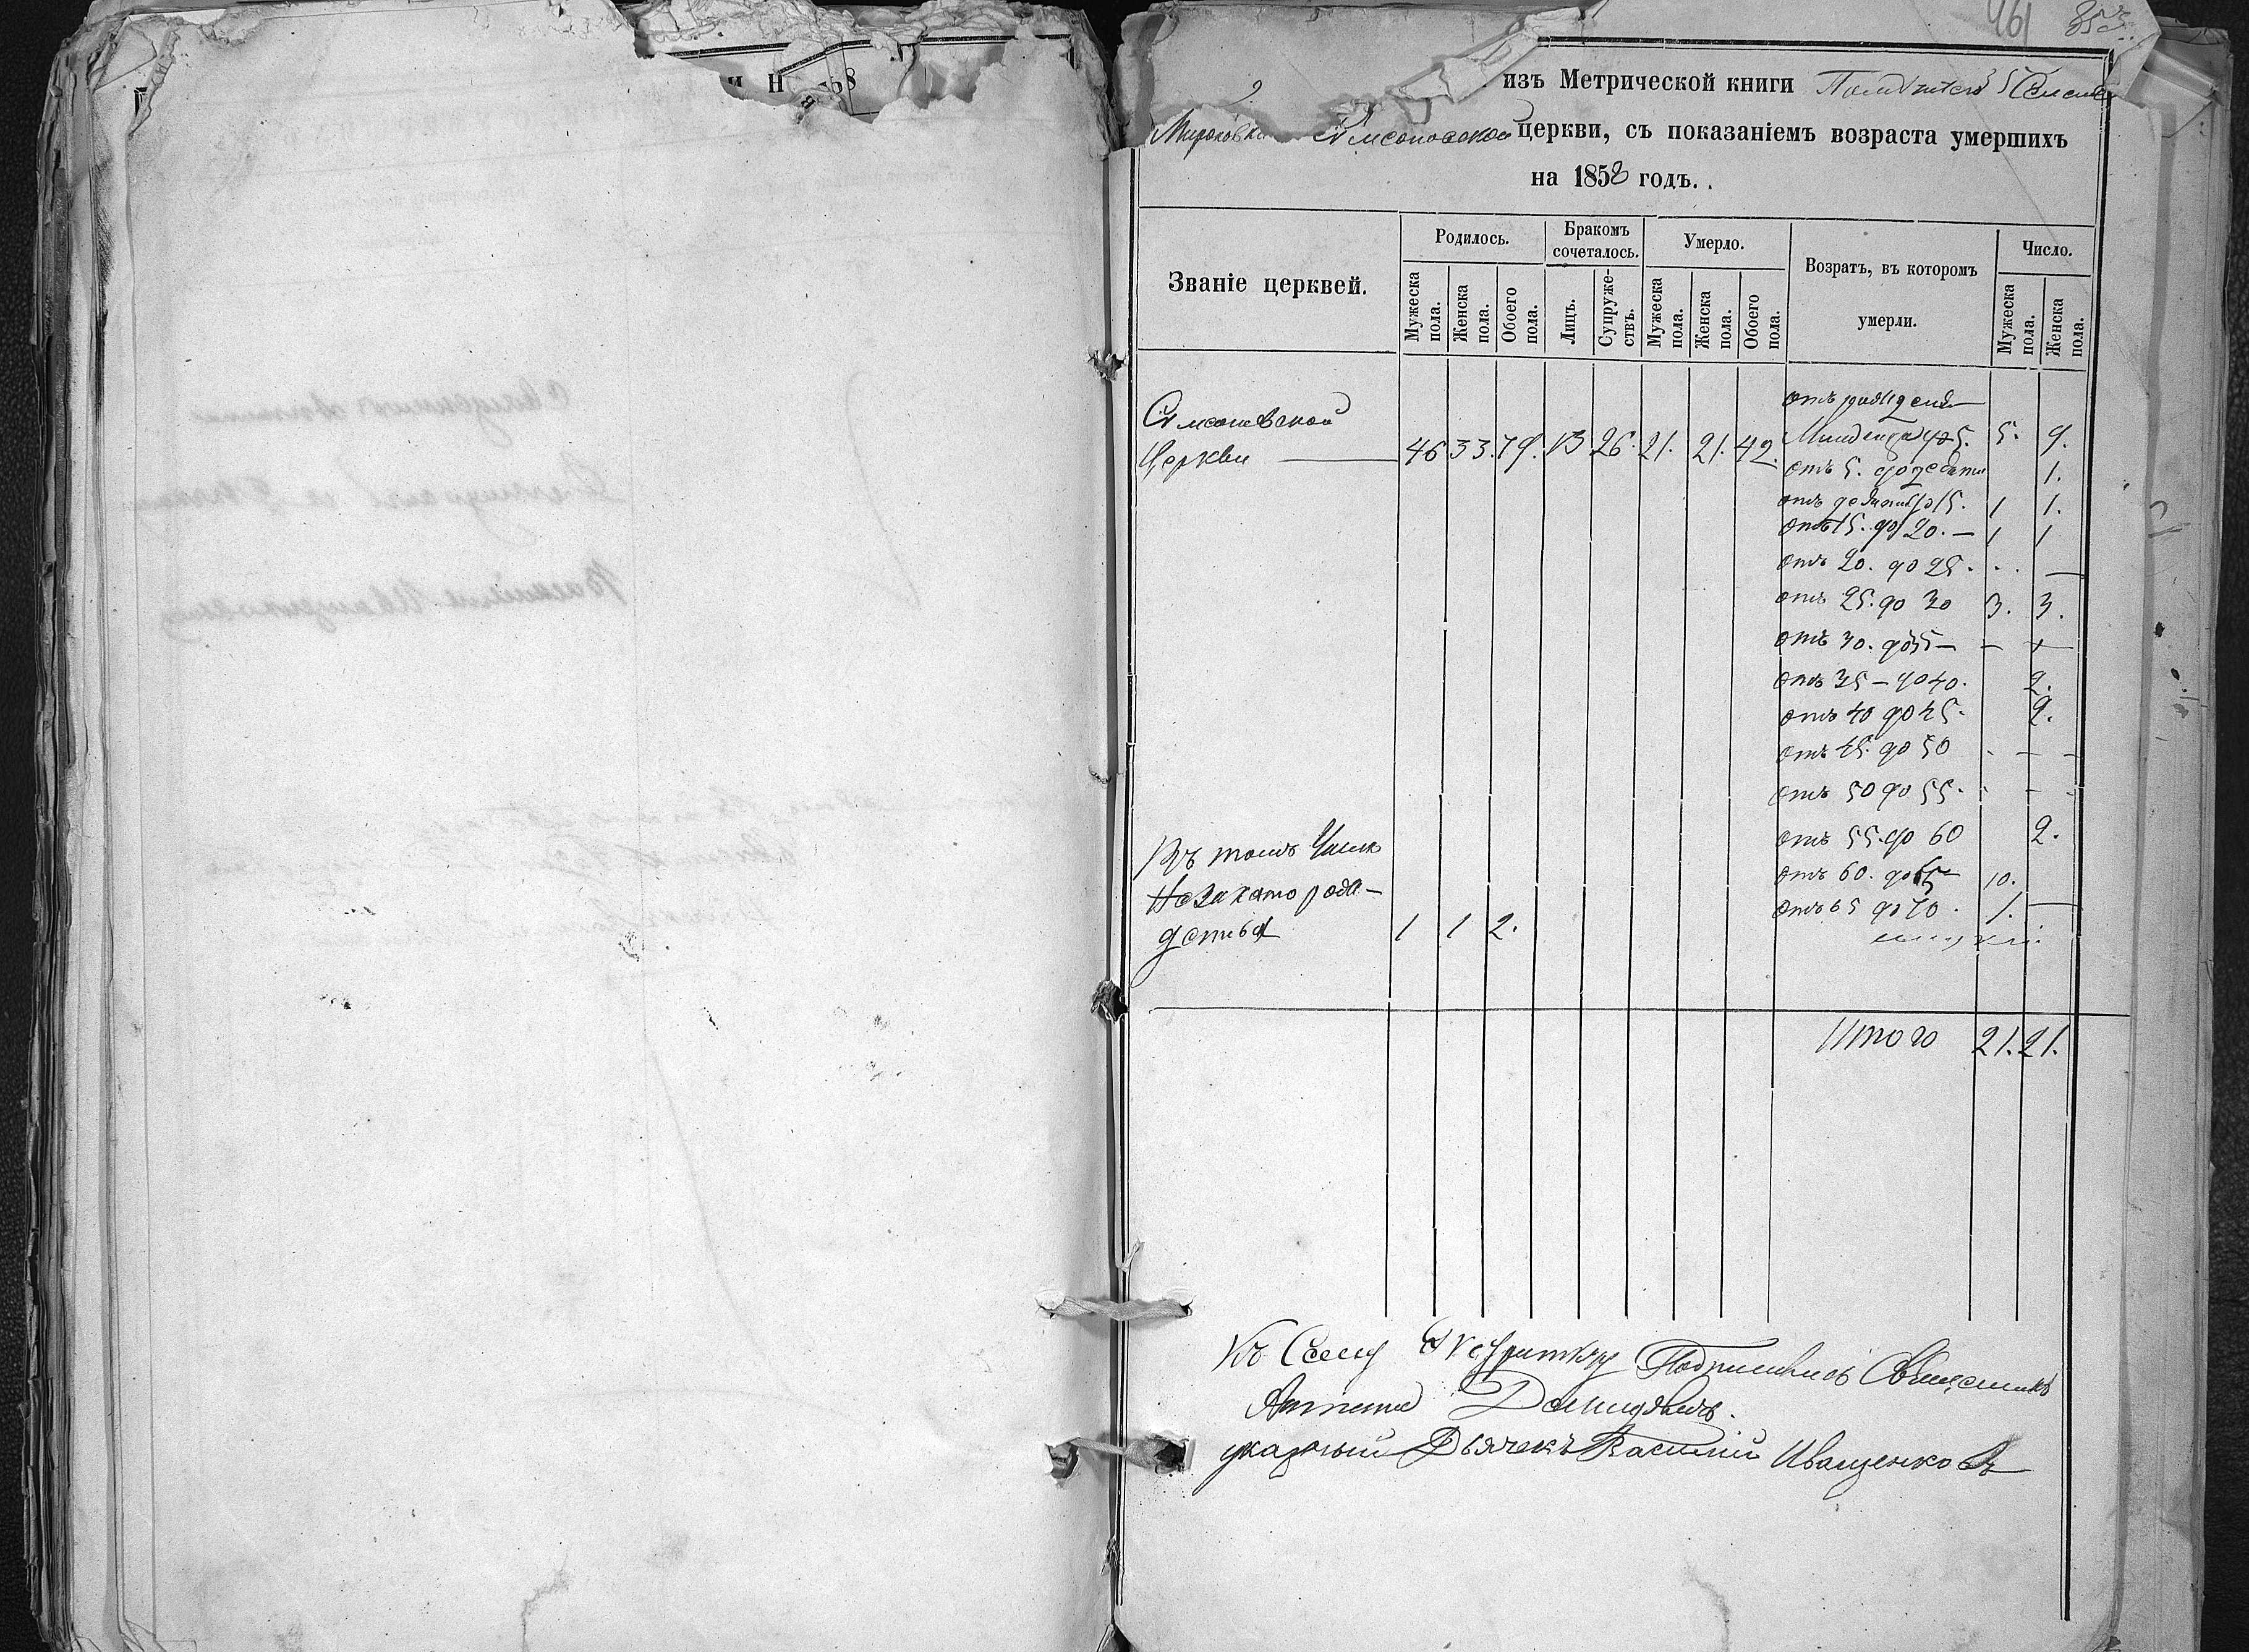 461
853
изъ Метрической книги
церкви, съ показаніемъ возраста умершихъ
на 1858 годъ.
Званіе церквей.
Родилось.
Бракомъ сочеталось.
Умерло.
Возратъ, въ котором умерли.
Число.
Мужеска пола.
Женска пола.
Обоего пола.
Лицъ.
Супружествъ.
Мужеска пола.
Женска пола.
Обоего пола.
Мужеска пола.
Женска пола.
Церкви 46 33. 79. 13 26. 21. 21. 42.
отъ рождения
5. 9.
отъ 5. до десяти 1.
отъ десяти до 15. 1 1.
отъ 15. до 20. — 1 1
отъ 20. до 25. . . —
отъ 25. до 30 3. 3.
отъ 30. до 35 — —
отъ 35 — до 40. 2.
отъ 40 до 45. 2.
отъ 45. до 50 - — -
отъ 50 до 55. - - -
отъ 55. до 60 2.
отъ 60. до 65 10.
отъ 65 до 70. 1. —
Въ томъ числе
1 1 2.
Итого 21. 21.
Къ Сему Подписался Священникъ
Демидовъ.
указный Дьячекъ Василій Иващенковъ